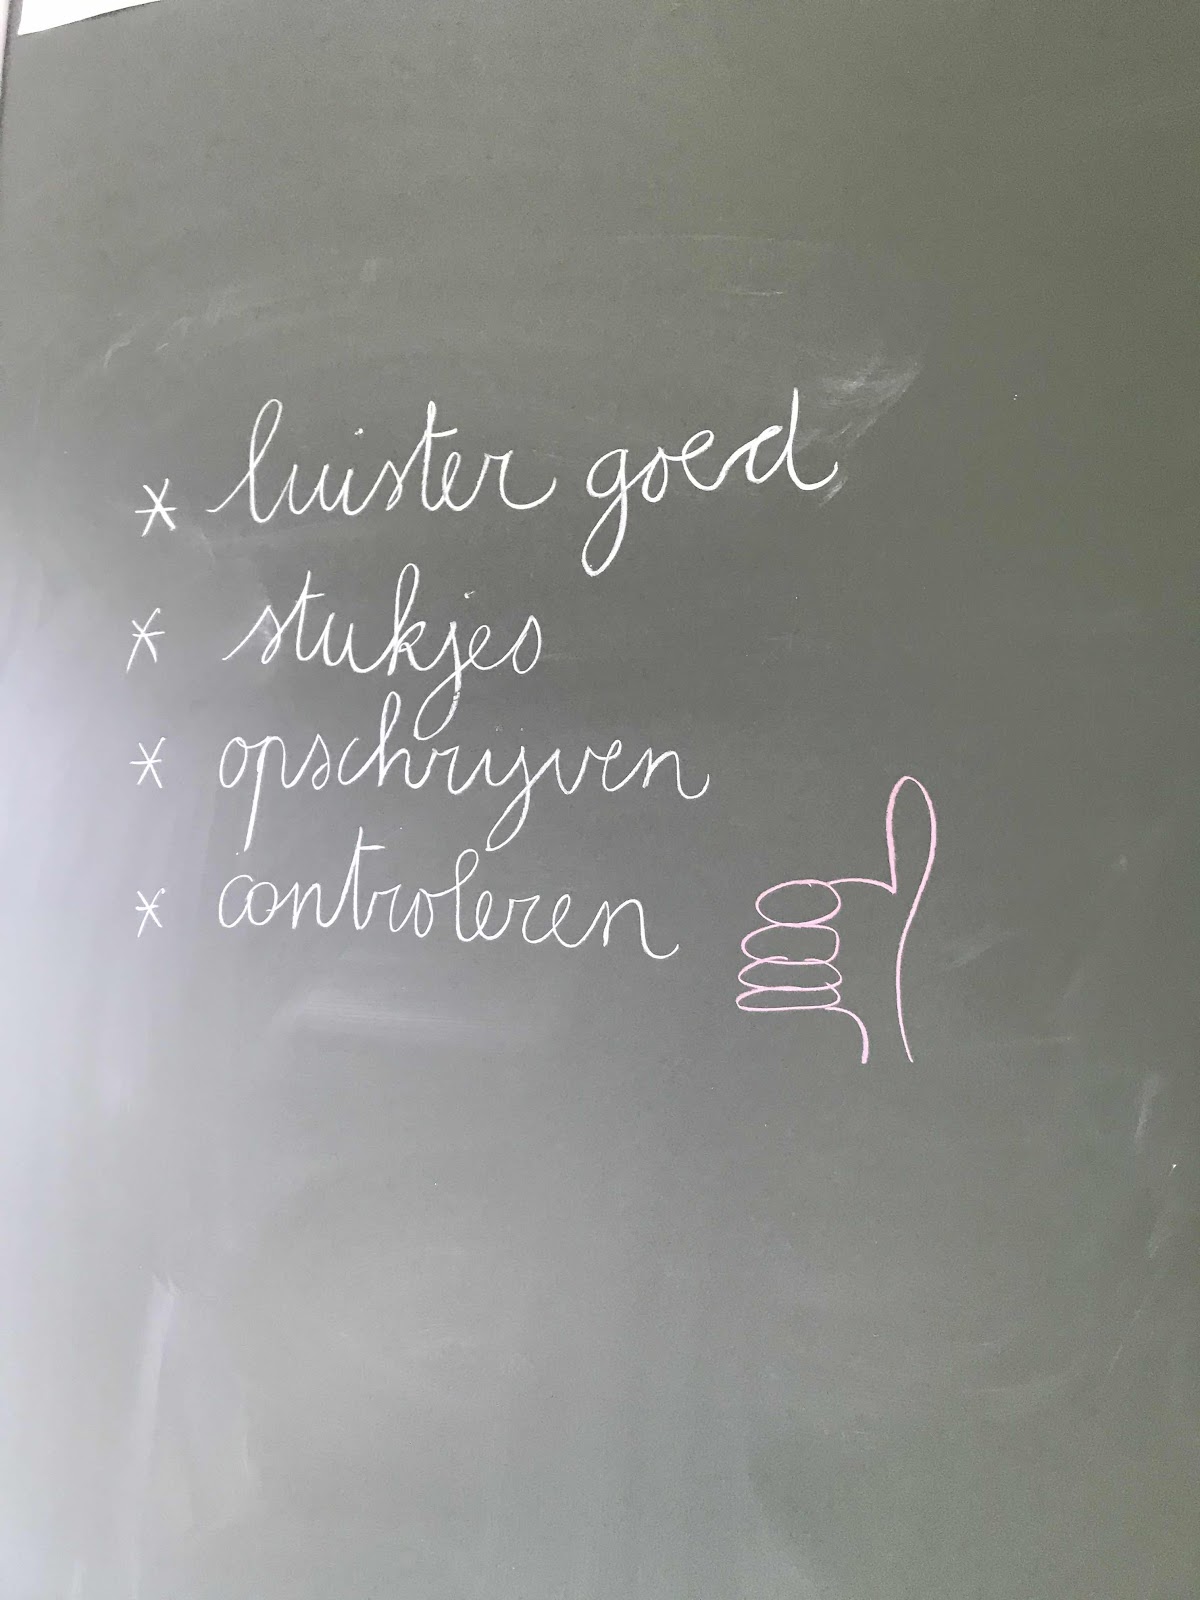 * luister goed
* stukjes
* opschrijven
* controleren